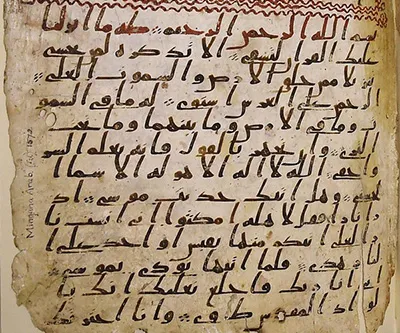 بسم الله الرحمن الرحيم طه ما انزلنا
عليك القرن لتشقى الا تذكره لمن يخشى
تنزيلا ممن خلق الارض والسموت العلى
الرحمن على العرش استوى له ما في السمو
ت وما في الارض وما بينهما وما تحت
الثرى وان تجهر بالقول فانه يعلم السر
واخفى الله لا اله الا هو له الاسما ا
لحسنى وهل اتيك حديث موسى اذ
را نارا فقل لاهله امكثوا اني انست نا
را لعلي اتيكم منها بقبس او اجد على ا
لنار هدى فلما اتيها نودي يموسى
اني انا ربك فاخلع نعليك انك با
لواد المقدس طوى وانا اخترتك
Mingana Arab. Isl. 1572